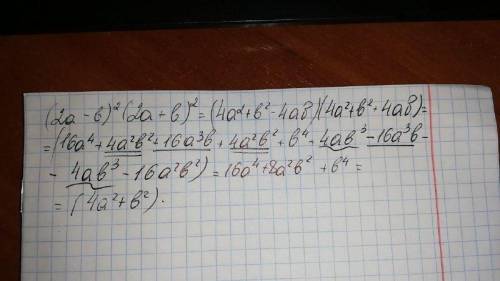 (2a - b)² (2a + b)² = (4a² + b² - 4ab)(4a² + b² + 4ab) =
= (16a⁴ + 4a²b² + 16a³b + 4a²b² + b⁴ + 4ab³ - 16a³b -
- 4ab³ - 16a²b²) = 16a⁴ + 8a²b² + b⁴ =
= (4a² + b²).